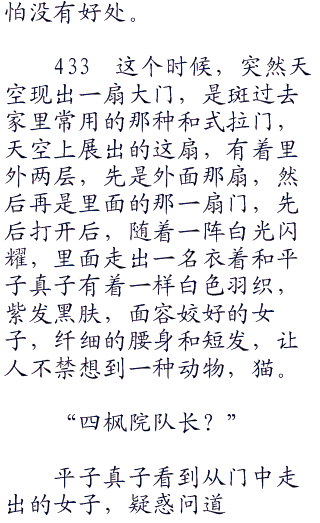 怕没有好处。
433　这个时候，突然天
空现出一扇大门，是斑过去
家里常用的那种和式拉门，
天空上展出的这扇，有着里
外两层，先是外面那扇，然
后再是里面的那一扇门，先
后打开后，随着一阵白光闪
耀，里面走出一名衣着和平
子真子有着一样白色羽织，
紫发黑肤，面容姣好的女
子，纤细的腰身和短发，让
人不禁想到一种动物，猫。
“四枫院队长？”
平子真子看到从门中走
出的女子，疑惑问道